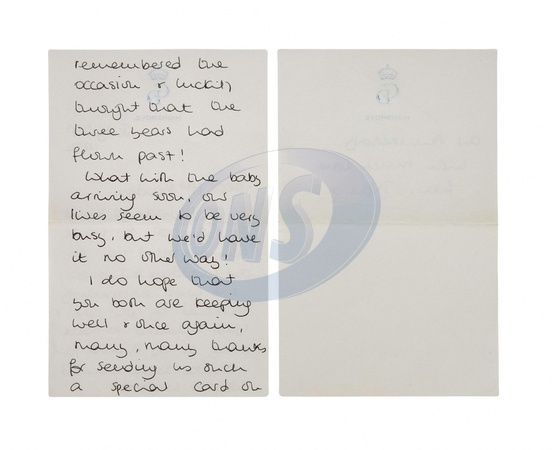 remembered the
occasion & luckily
thought that the
three years had
flown past!
What with the baby
arriving soon, our
lives seem to be very
busy, but we'd have
it no other way!
I do hope that
you both are keeping
well & once again,
many, many thanks
for sending us such
a special card on
UNS